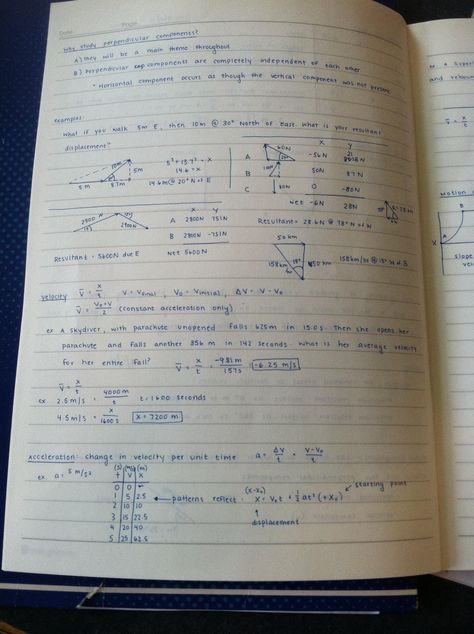 Date Page
Why study perpendicular components?
A) They will be a main theme throughout
B) Perpendicular components are completely independent of each other
* Horizontal component occurs as though the vertical component was not present
examples:
What if you walk 5m E, then 10m @ 30° North of East. What is your resultant
displacement?
10m
5m
5m 8.7m
5² + 13.7² = x
14.6 = x
14.6m @ 20° N of E
X Y
A 60N -56N 21
B 50N 87N
C 80N 0 -80N
Net -6N 28N
Resultant = 28.6N @ 78° N of W
2900N 2900N
15°
A 2800N 751N
B 2800N -751N
Resultant = 5600N due E Net 5600N
50km
158km 18° 150km
Velocity v̄ = x/t V = Vfinal , V₀ = Vinitial , ΔV = V - V₀
v̄ = V₀+V/2 (constant acceleration only)
ex A skydiver, with parachute unopened falls 625m in 15.0s. Then she opens her
parachute and falls another 356m in 142 seconds. What is her average velocity
for her entire fall? v̄ = x/t = -981m/157s = -6.25 m/s
v̄ = x/t
ex 2.5 m/s = 4000m/t t = 1600 seconds
4.5 m/s = x/1600s x = 7200m
Acceleration: change in velocity per unit time a = ΔV/t = V-V₀/t
ex a = 5 m/s² (s) (m/s) (m)
t V X
0 0
1 5 2.5
2 10 10
3 15 22.5
4 20 40
5 25 62.5
patterns reflect: (x-x₀) x = V₀t + ½at² (+x₀) starting point
displacement